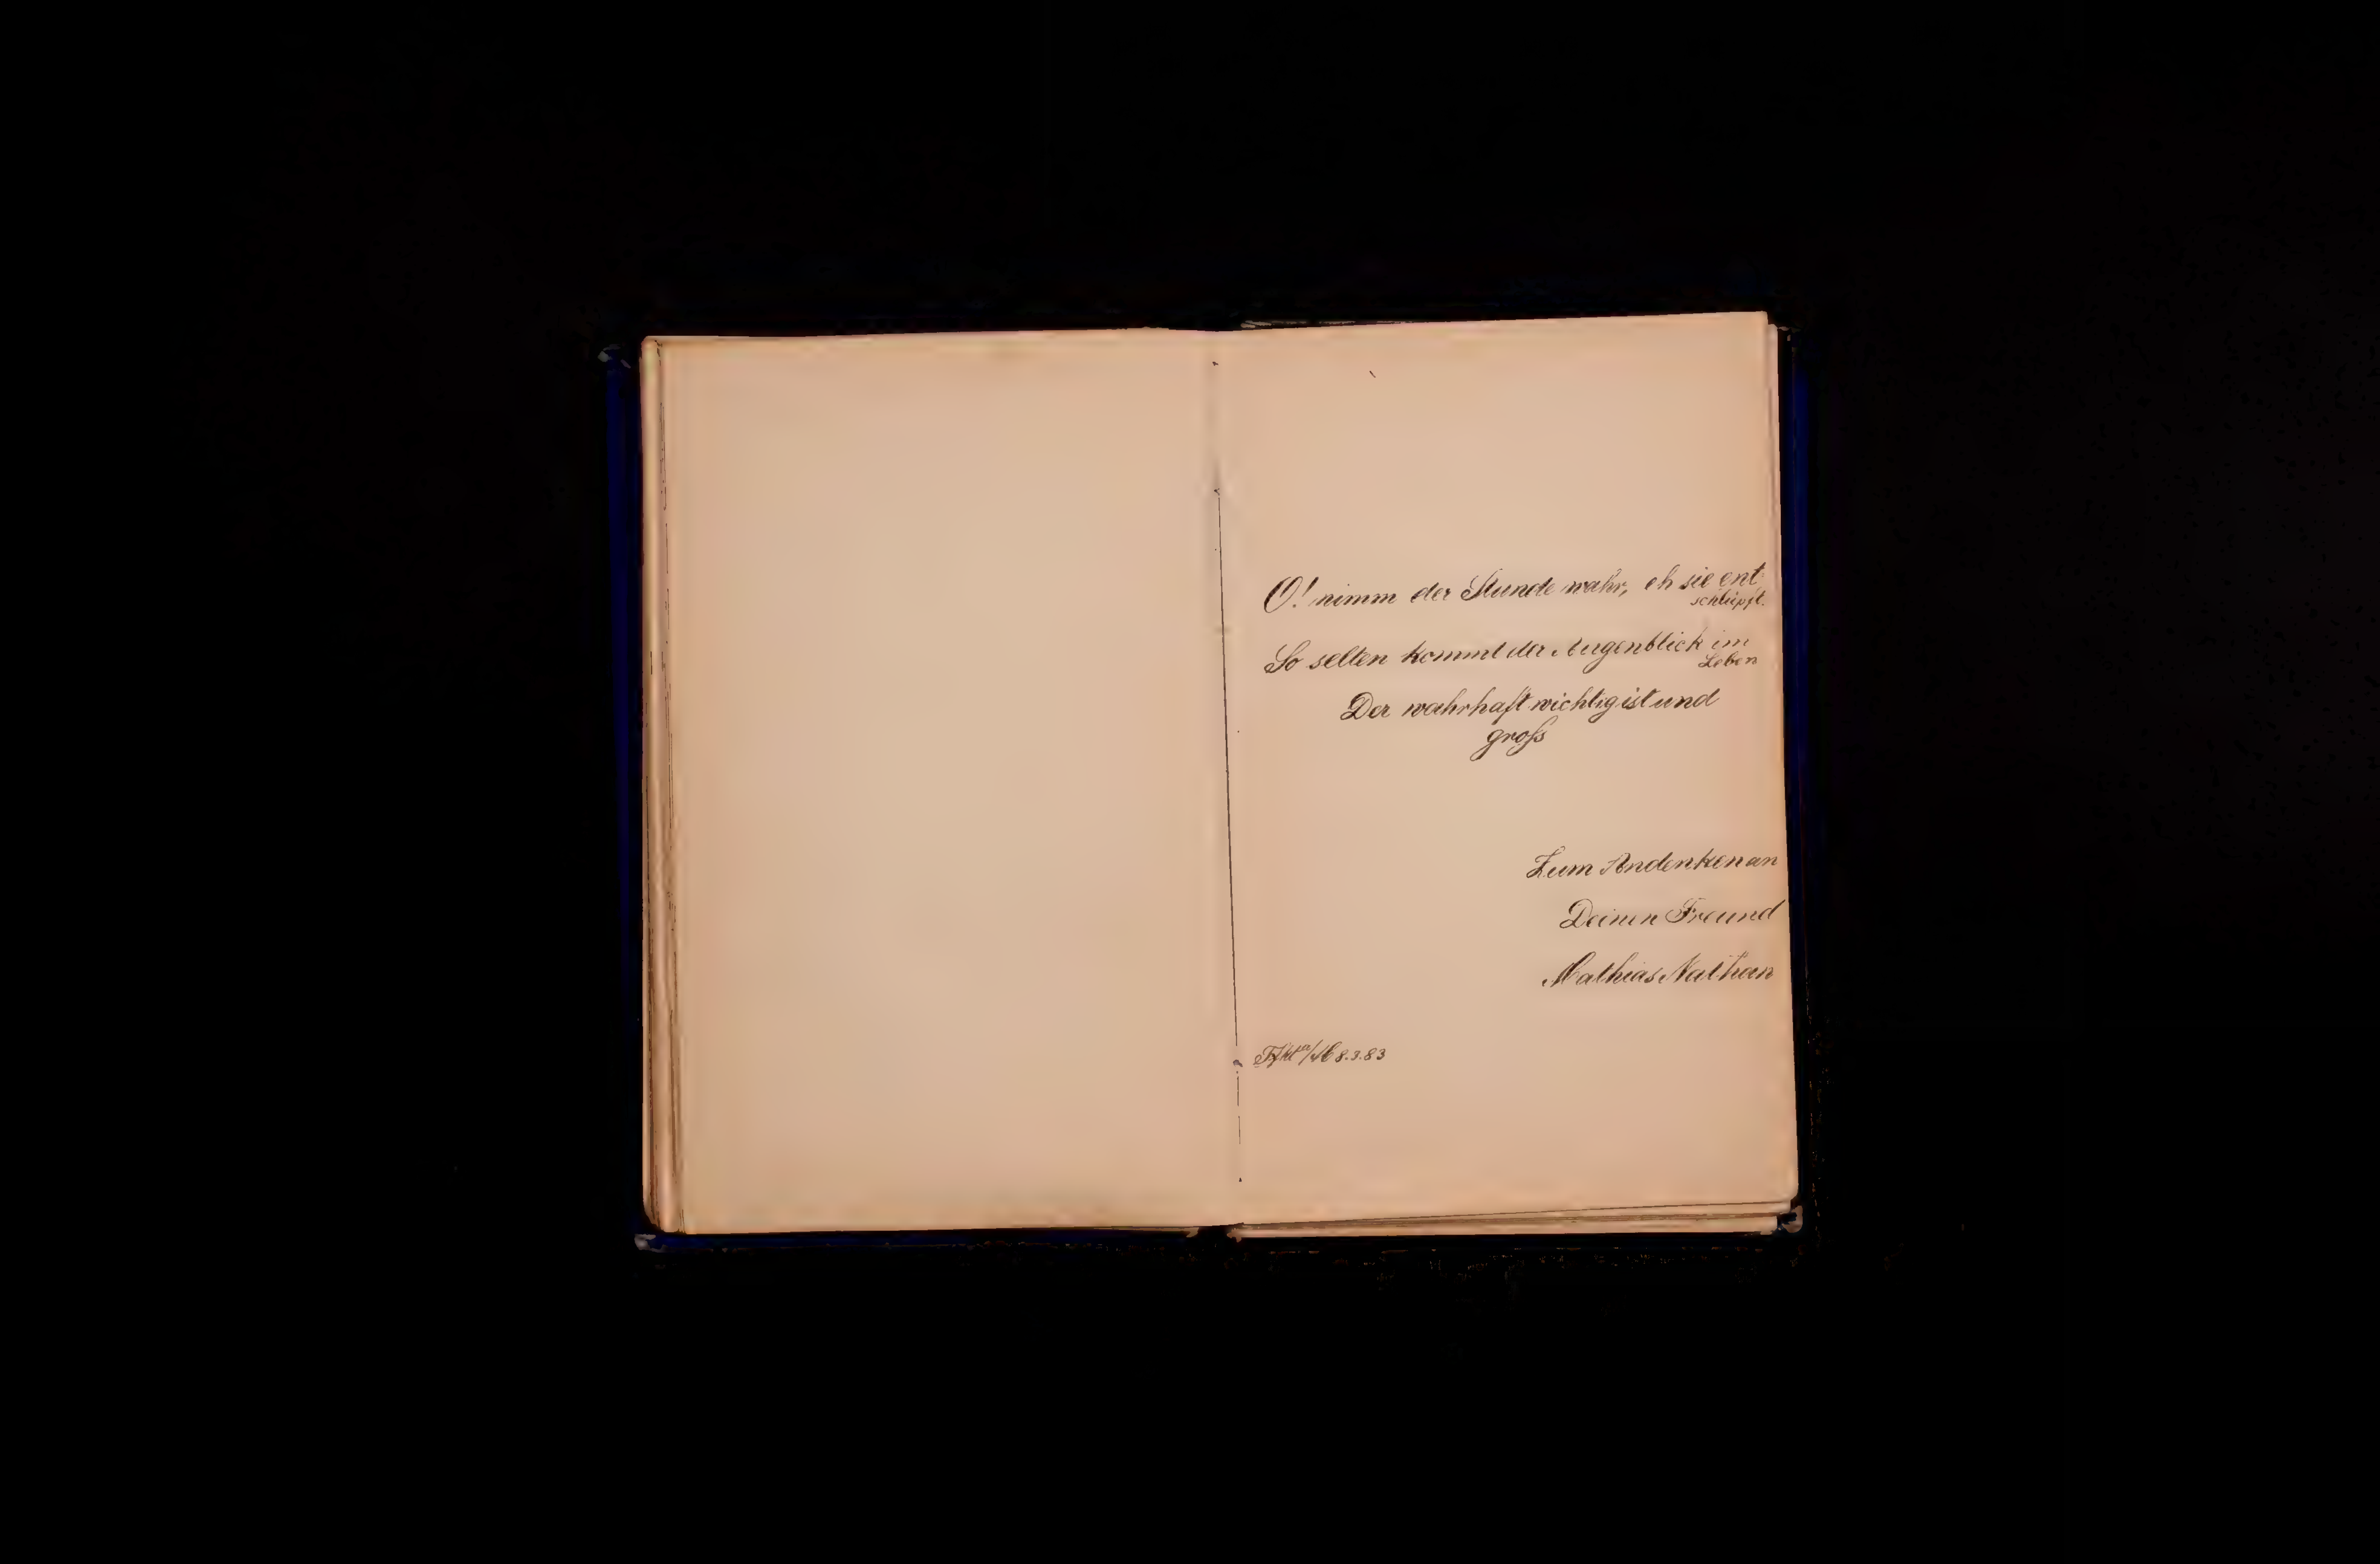 O! nimm der Stunde wahr, eh sie ent
schlüpft.
So selten kommt der Augenblick im
Leben
Der wahrhaft wichtig ist und
groſs
Zum Andenken an
Deinen Freund
Mathias Nathan
Ffkt a/M 8.3.83